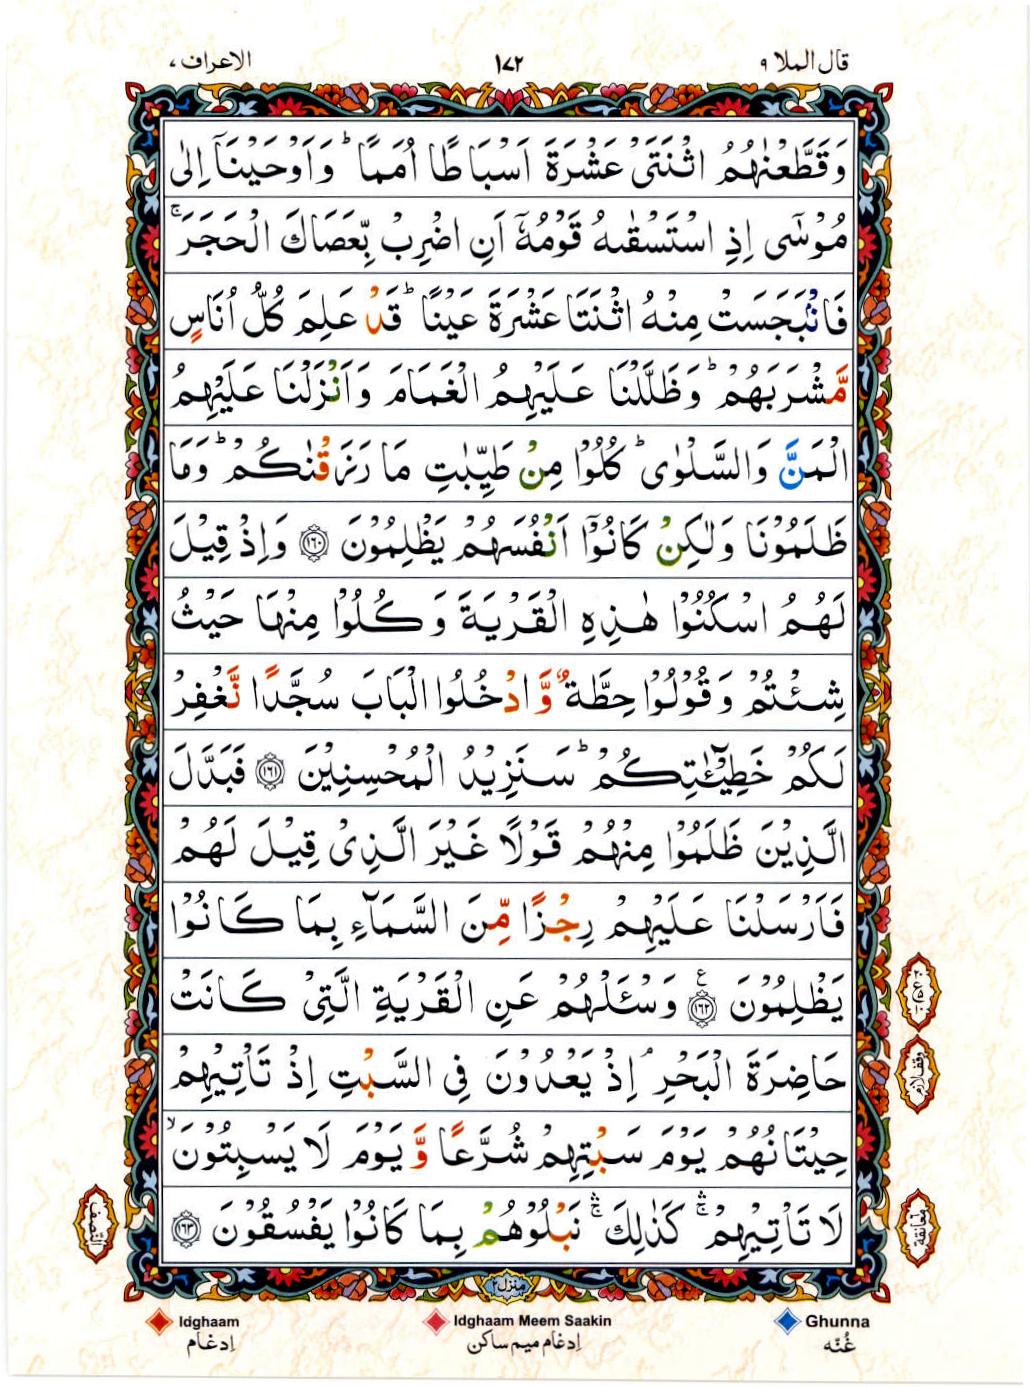 قال الملا ٩
١٧٢
الاعراف ٧
وَقَطَّعْنٰهُمُ اثْنَتَىْ عَشْرَةَ اَسْبَاطًا اُمَمًا ؕ وَاَوْحَيْنَاۤ اِلٰى
مُوْسٰٓى اِذِ اسْتَسْقٰٮهُ قَوْمُهٗۤ اَنِ اضْرِبْ بِّعَصَاكَ الْحَجَرَ ۚ
فَانْۢبَجَسَتْ مِنْهُ اثْنَتَا عَشْرَةَ عَيْنًا ؕ قَدْ عَلِمَ كُلُّ اُنَاسٍ
مَّشْرَبَهُمْ ؕ وَظَلَّلْنَا عَلَيْهِمُ الْغَمَامَ وَاَنْزَلْنَا عَلَيْهِمُ
الْمَنَّ وَالسَّلْوٰى ؕ كُلُوْا مِنْ طَيِّبٰتِ مَا رَزَقْنٰكُمْ ؕ وَمَا
ظَلَمُوْنَا وَلٰـكِنْ كَانُوْۤا اَنْفُسَهُمْ يَظْلِمُوْنَ ﴿۱۶۰﴾ وَاِذْ قِيْلَ
لَهُمُ اسْكُنُوْا هٰذِهِ الْقَرْيَةَ وَكُلُوْا مِنْهَا حَيْثُ
شِئْتُمْ وَقُوْلُوْا حِطَّةٌ وَّادْخُلُوا الْبَابَ سُجَّدًا نَّغْفِرْ
لَكُمْ خَطِيْٓئٰتِكُمْ ؕ سَنَزِيْدُ الْمُحْسِنِيْنَ ﴿۱۶۱﴾ فَبَدَّلَ
الَّذِيْنَ ظَلَمُوْا مِنْهُمْ قَوْلًا غَيْرَ الَّذِىْ قِيْلَ لَهُمْ
فَاَرْسَلْنَا عَلَيْهِمْ رِجْزًا مِّنَ السَّمَآءِ بِمَا كَانُوْا
يَظْلِمُوْنَ ﴿۱۶۲﴾ ع وَسْئَلْهُمْ عَنِ الْقَرْيَةِ الَّتِىْ كَانَتْ
حَاضِرَةَ الْبَحْرِ ۘ اِذْ يَعْدُوْنَ فِى السَّبْتِ اِذْ تَاْتِيْهِمْ
وقف لازم
حِيْتَانُهُمْ يَوْمَ سَبْتِهِمْ شُرَّعًا وَّيَوْمَ لَا يَسْبِتُوْنَ ۙ
لَا تَاْتِيْهِمْ ۛۚ كَذٰلِكَ ۛۚ نَبْلُوْهُمْ بِمَا كَانُوْا يَفْسُقُوْنَ ﴿۱۶۳﴾
معانقة
النصف
منزل ٢
Ghunna
غُنّه
Idghaam Meem Saakin
اِدغام میم ساکن
Idghaam
اِدغام